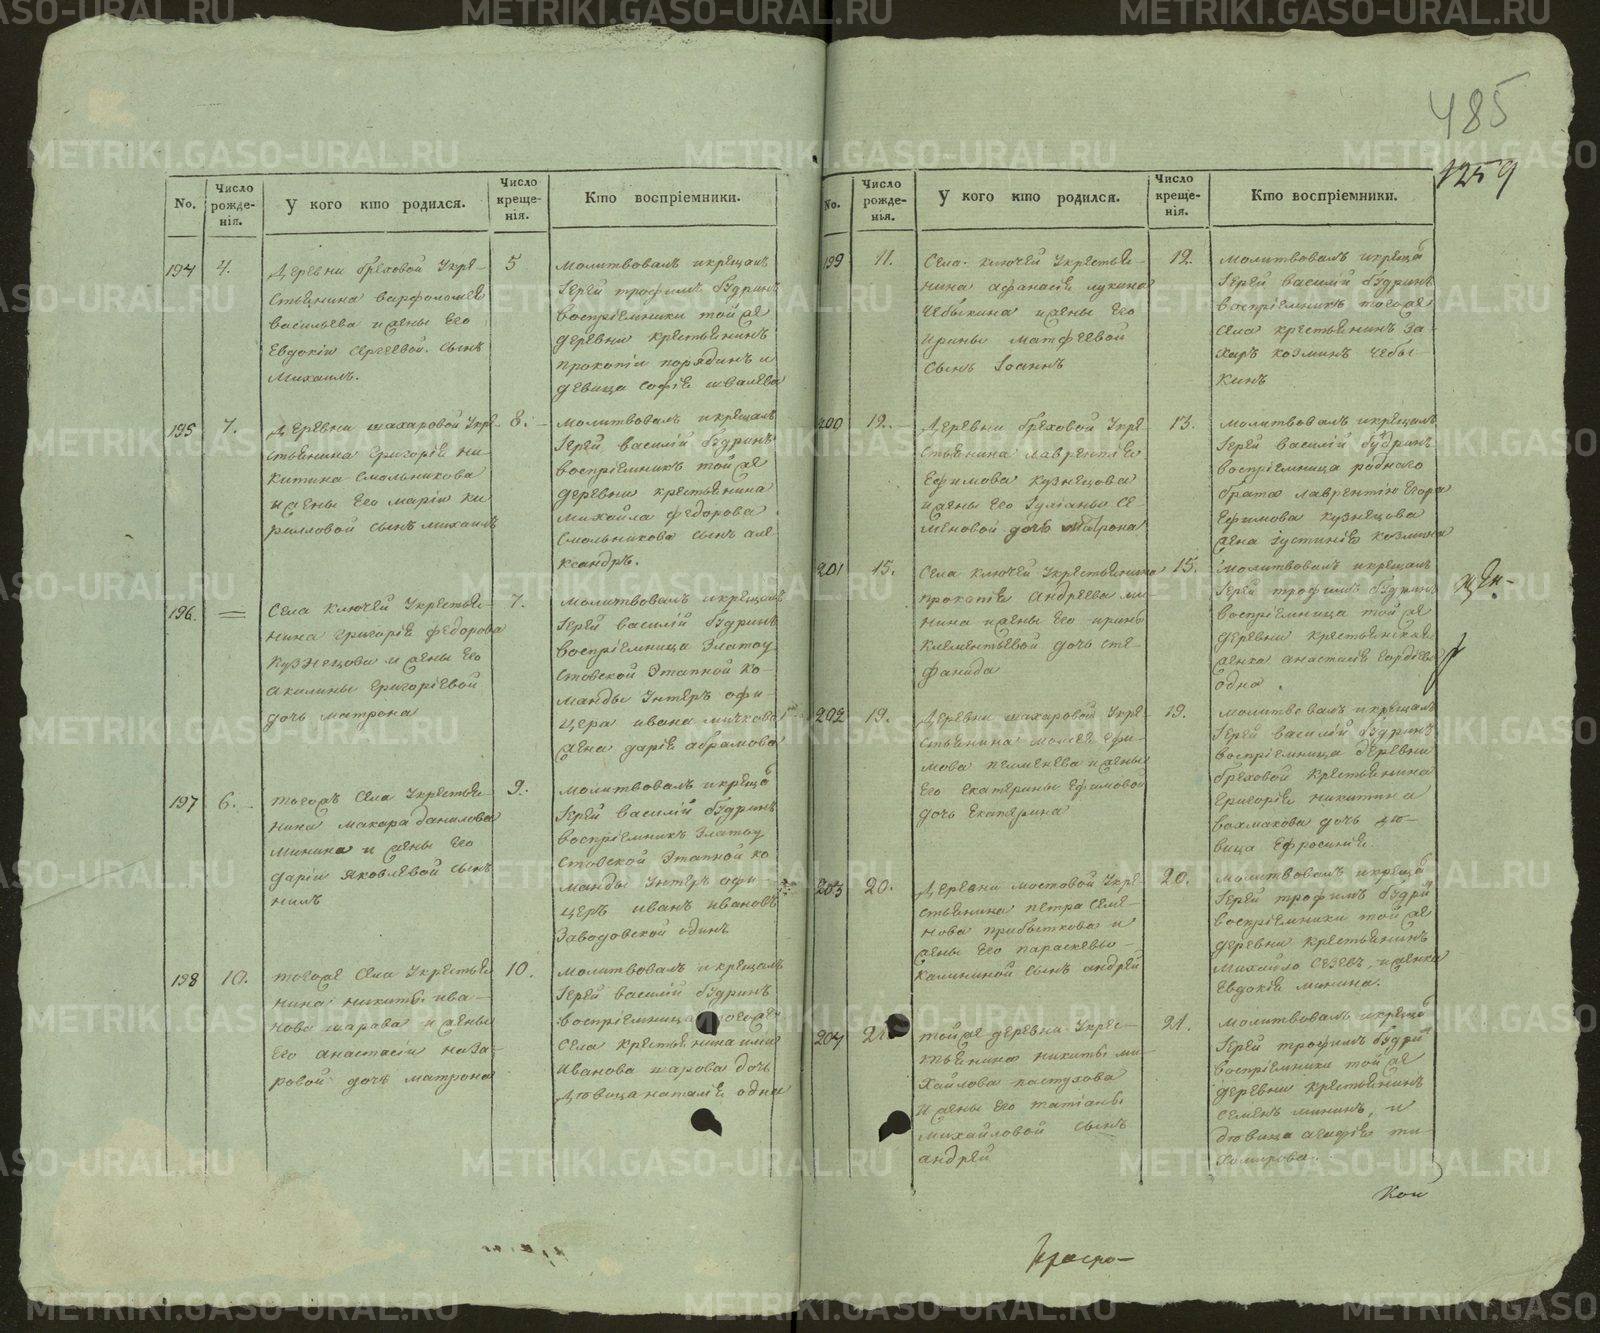 485
1259
No.
Число рожде-
нія.
У кого кто родился.
Число креще-
нія.
Кто воспріемники.
194
4.
Деревни Греховой У кре-
стьянина Варфоломея
Васильева и жены его
Евдокіи Сергеевой. сынъ
Михаилъ.
5
молитвовалъ и крещалъ
Іерей Трофимъ Будринъ
воспріемники той же
деревни крестьянинъ
Прокопій Порядинъ и
девица Софія
195
7.
Деревни Шахаровой У кре-
стьянина Григорія Ни-
китина Смольникова
и жены его Маріи Ки
риловой сынъ Михаилъ
8.
молитвовалъ и крещалъ
Іерей Василій Будринъ
воспріемникъ той же
деревни крестьянина
Михайла Федорова
Смольникова сынъ Але
ксандръ.
196.
=
Села Ключей У крестья-
нина Григорія Федорова
Кузнецова и жены его
Акилины Григоріевой
дочь Матрона
7.
молитвовалъ и крещалъ
Іерей Василій Будринъ
воспріемница Златоу
стовской Этапной ко-
манды Унтеръ офи-
цера Ивана
жена Дарія Абрамова
197
6.
тогожъ Села У крестья-
нина Макара Данилова
Минина и жены его
Даріи Яковлевой сынъ
Нилъ
9.
молитвовалъ и креща
Іерей Василій Будринъ
воспріемникъ Златоу
стовской Этапной ко
манды Унтеръ офи-
церъ Иванъ Ивановъ
Заводовской одинъ
198
10.
тогоже Села У крестья
нина Никиты Ива-
нова Шарова и жены
его Анастасіи Наза-
ровой дочь Матрона
10.
молитвовалъ и крещалъ
Іерей Василій Будринъ
воспріемница тогоже
Села крестьянина
Иванова Шарова дочь
девица Наталія одна
No.
Число рожде-
нья.
У кого кто родился.
Число креще-
нія.
Кто воспріемники.
199
11.
Села Ключей У крестья-
нина Афанасія Лукина
Чебыкина и жены его
Ирины Матфеевой
сынъ Іоаннъ
12.
молитвовалъ и креща
Іерей Василій Будринъ
воспріемникъ тогоже
Села крестьянинъ За-
харъ Козминъ Чебы-
кинъ
200
12.
Деревни Греховой У кре
стьянина Лаврентія
Ефимова Кузнецова
и жены его Іуліаньи Се
меновой дочь Матрона
13.
молитвовалъ и крещалъ
Іерей Василій Будринъ
воспріемница роднаго
брата Лаврентію Егора
Ефимова Кузнецова
жена Іустинія Козмина
201
15.
Села Ключей У крестьянина
Прокопія Андреева Ми-
нина и жены его Ирины
Клементьевой дочь Сте-
фанида
15.
молитвовалъ и крещалъ
Іерей Трофимъ Будринъ
воспріемница той же
деревни крестьянская
женка Анастасія Гордеева
одна.
202
19.
Деревни Шахаровой У кре-
стьянина Моисея Ефи-
мова Пеменева и жены
его Екатерины Ефимовой
дочь Екатерина
19.
молитвовалъ и крещалъ
Іерей Василій Будринъ
воспріемница деревни
Греховой крестьянина
Григорія Никитина
Вахмакова дочь де-
вица Ефросинія.
203
20.
Деревни Мостовой У кре
стьянина Петра Семе-
нова Прибыткова и
жены его Параскевы
Калининой сынъ Андрей
20.
молитвовалъ и креща
Іерей Трофимъ Будри
воспріемники той же
деревни крестьянинъ
Михайло и женка
Евдокія Минина.
204
21
той же деревни У крес-
тьянина Никиты Ми-
хайлова Пастухова
и жены его Татіаны
Михайловой сынъ
Андрей
21.
молитвовалъ и креща
Іерей Трофимъ Будри
воспріемники той же
деревни крестьянинъ
Семенъ Мининъ, и
девица Агафія Ти-
хомирова.